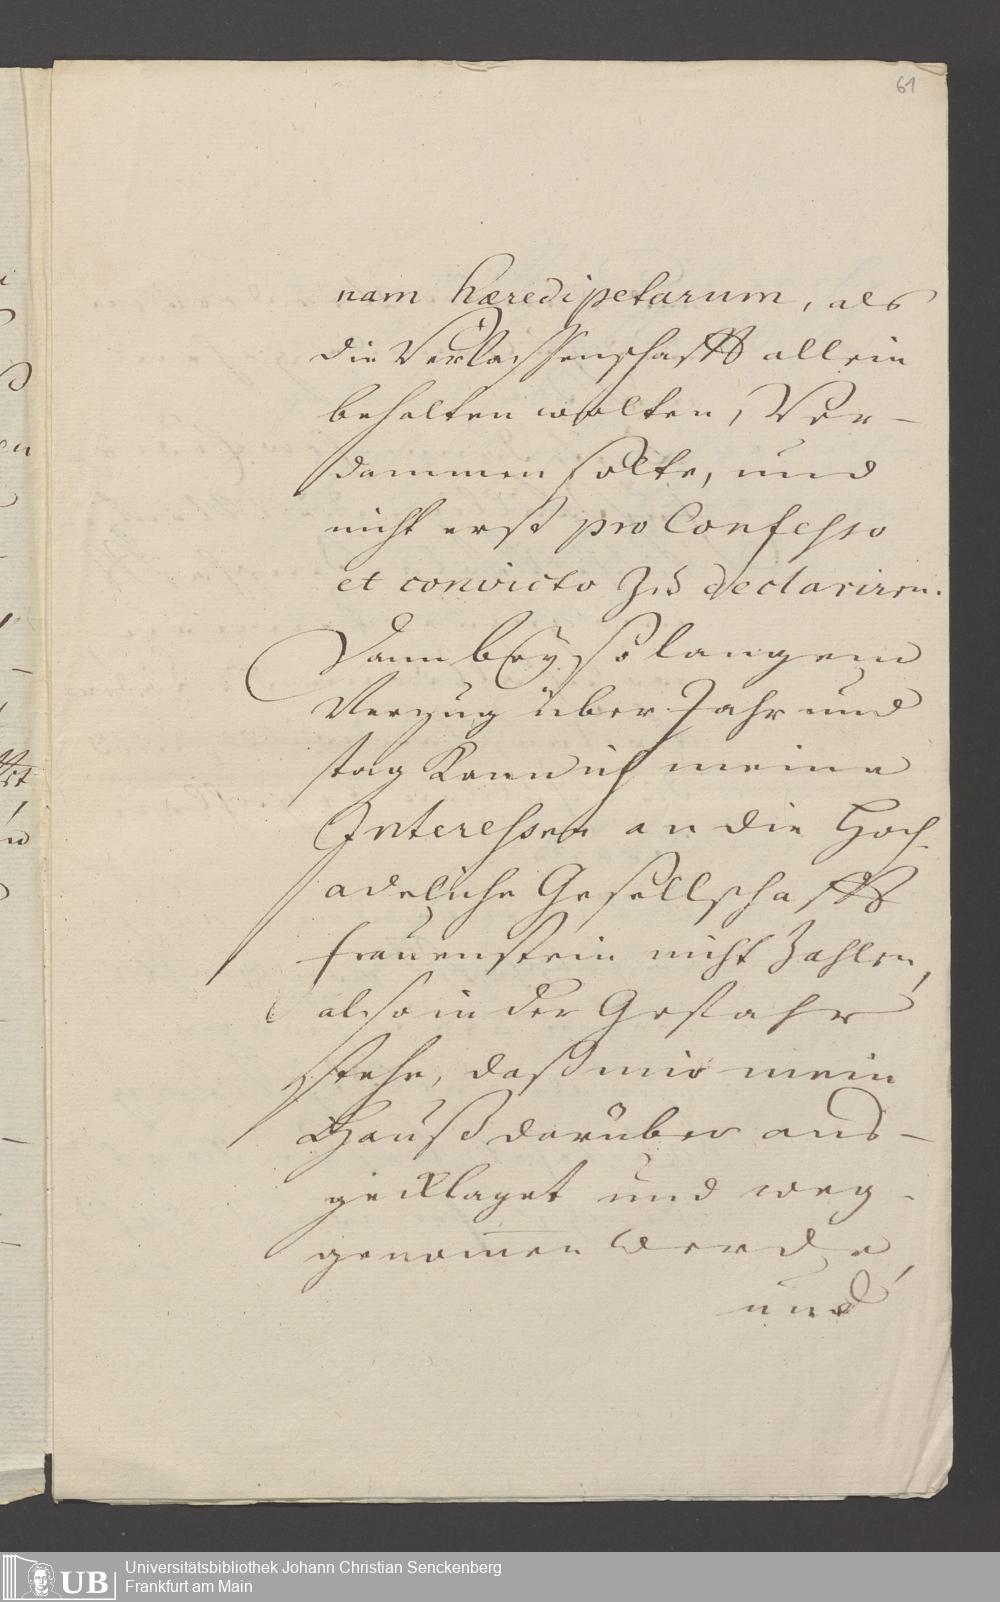 61
nam hæredipetarum, als
die Verlassenschafft allein
behalten wolten, Ver-
dammen solte, und
nicht erst pro Confesso
et convicto zu declariren.
Dann bey so langem
Verzug über Jahr und
tag kann ich meine
Interessen an die Hoch-
adeliche Gesellschafft
frauenstein nicht Zahlen,
also in der Gefahr
stehe, daß mir mein
Hauß darüber aus-
geklaget und weg-
genommen werde,
und
UB
Universitätsbibliothek Johann Christian Senckenberg
Frankfurt am Main